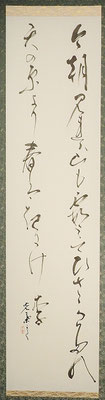 今朝見れば山も霞みてひさかたの
天の原より春は来にけり